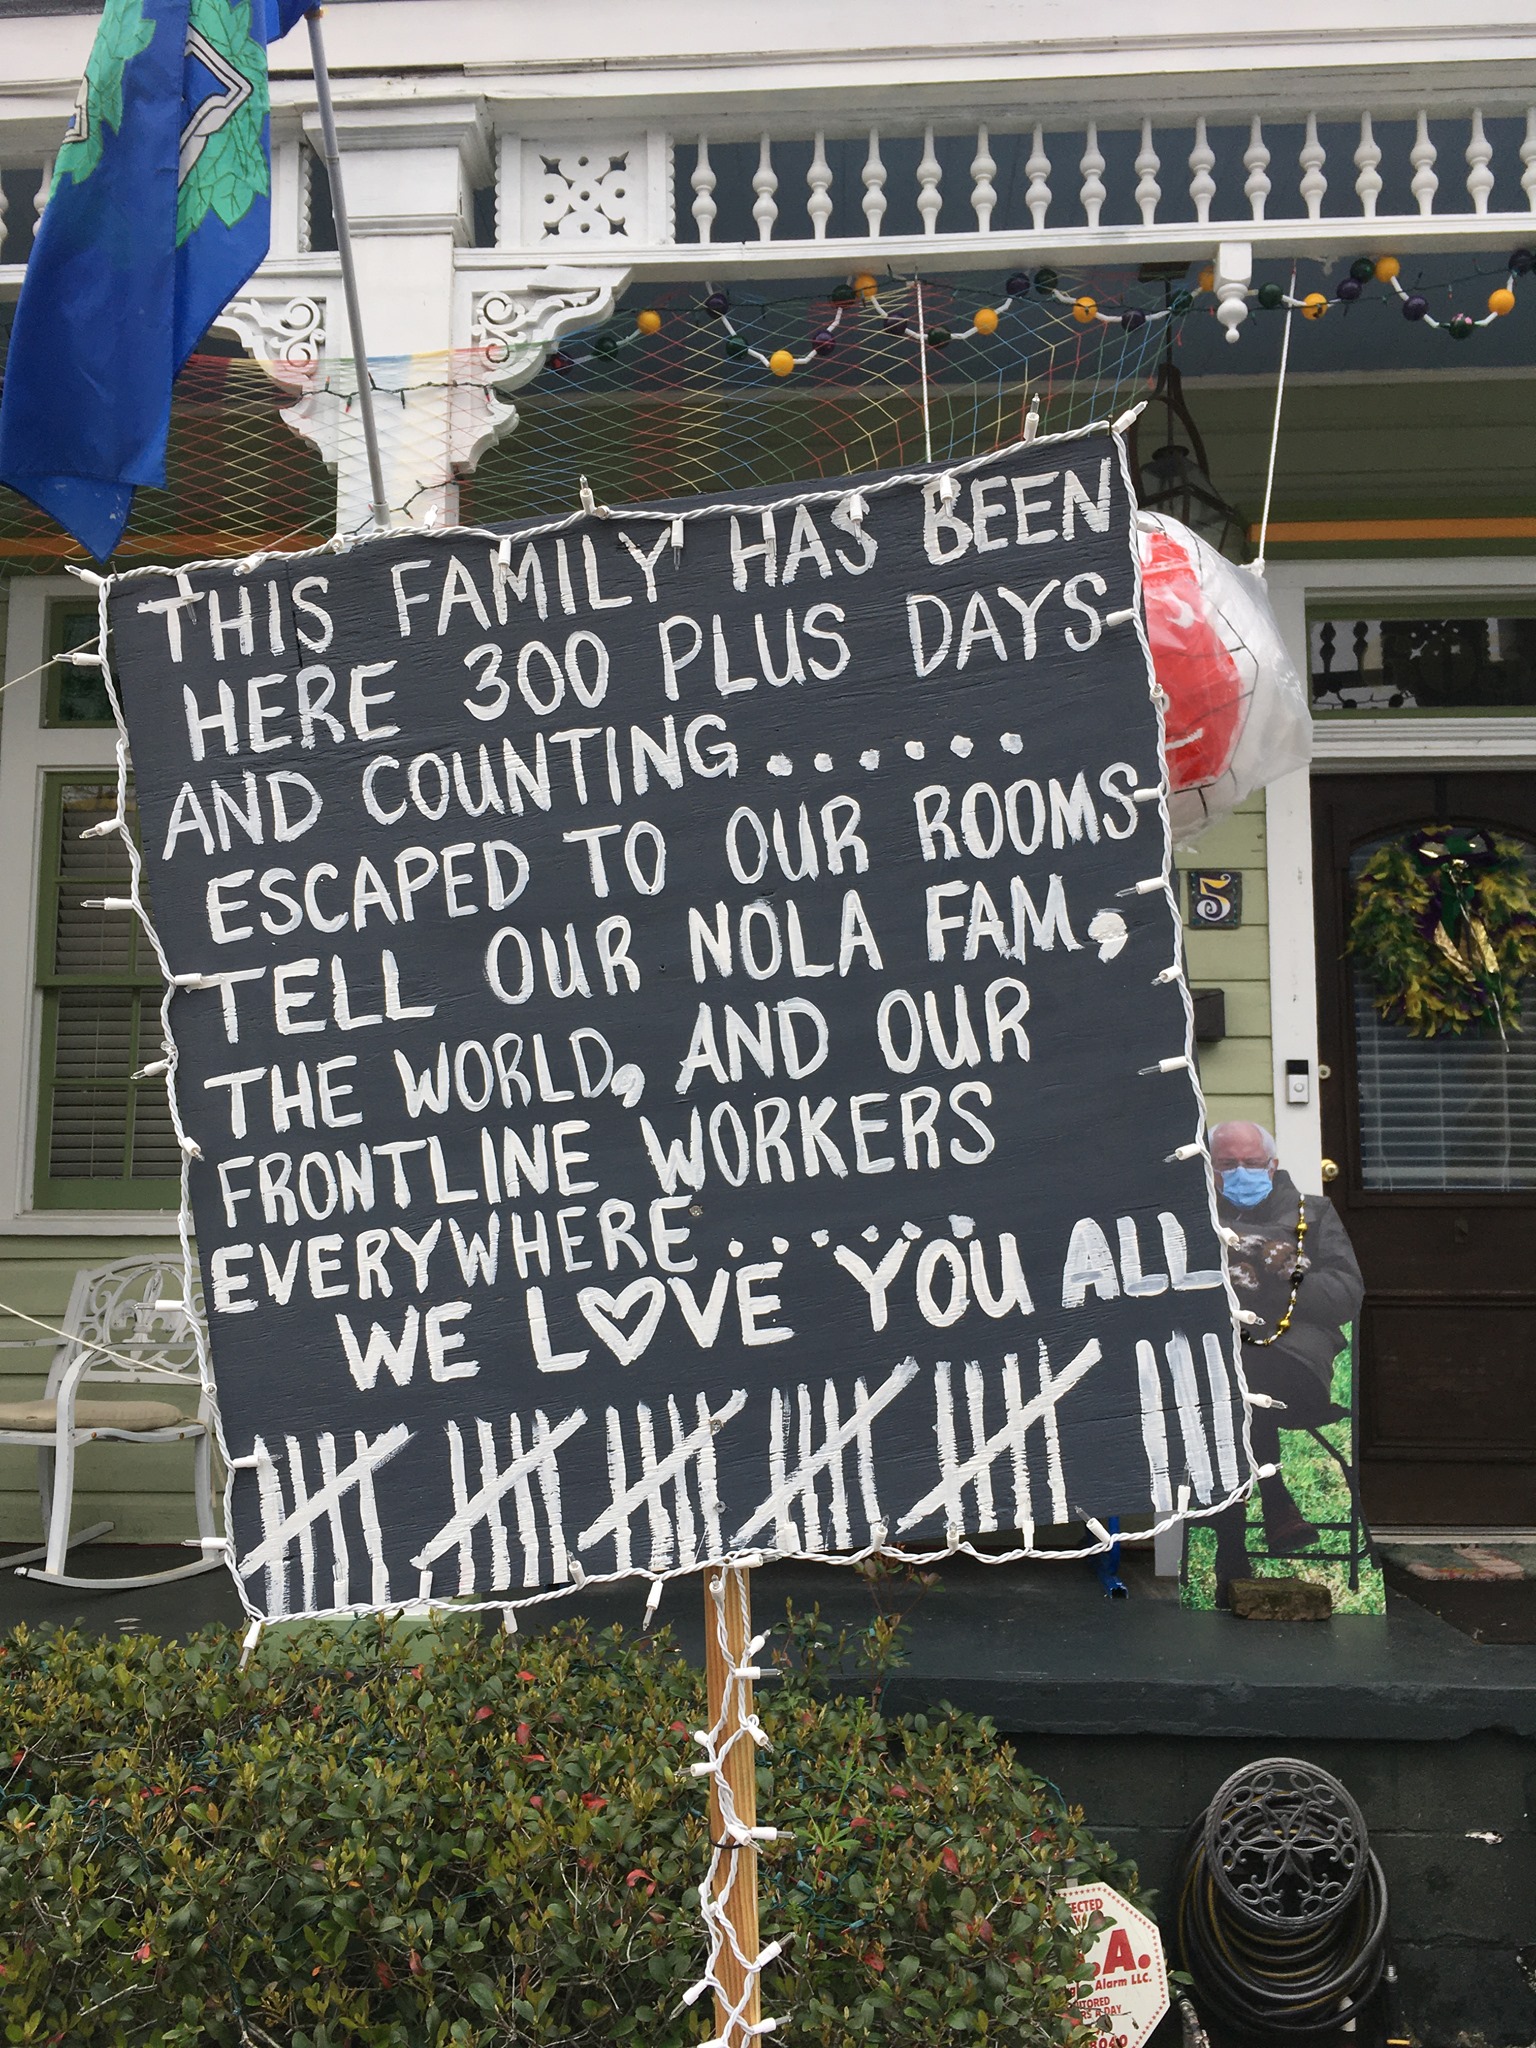 THIS FAMILY HAS BEEN
HERE 300 PLUS DAYS
AND COUNTING......
ESCAPED TO OUR ROOMS
TELL OUR NOLA FAM,
THE WORLD, AND OUR
FRONTLINE WORKERS
EVERYWHERE.......
WE LOVE YOU ALL
5
.A.
Alarm LLC.